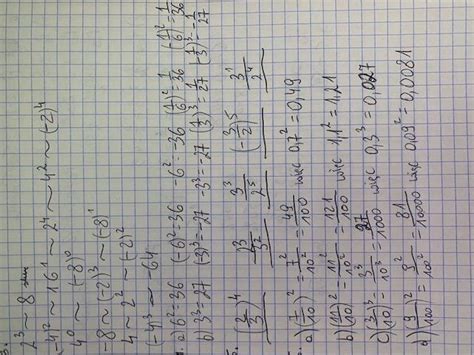 2³ ~ 8
(-4)² ~ 16¹ ~ 2⁴ ~ 4² ~ (-2)⁴
4⁰ ~ (-8)⁰
-8 ~ (-2)³ ~ (-8)¹
4 ~ 2² ~ (-2)²
(-4)³ ~ -64
a) 6²=36 (-6)²=36 -6²=-36 (1/6)²=1/36 (-1/6)²=1/36
b) 3³=27 (-3)³=-27 -3³=-27 (1/3)³=1/27 (-1/3)³=-1/27
(2/3)⁴ 3³/2⁵ (-3/2)⁵ 3¹/2⁴
a) (7/10)²=7²/10²=49/100 więc 0,7²=0,49
b) (11/10)²=11²/10²=121/100 więc 1,1²=1,21
c) (3/10)³=3³/10³=27/1000 więc 0,3³=0,027
d) (9/100)²=9²/10²=81/10000 więc 0,09²=0,0081